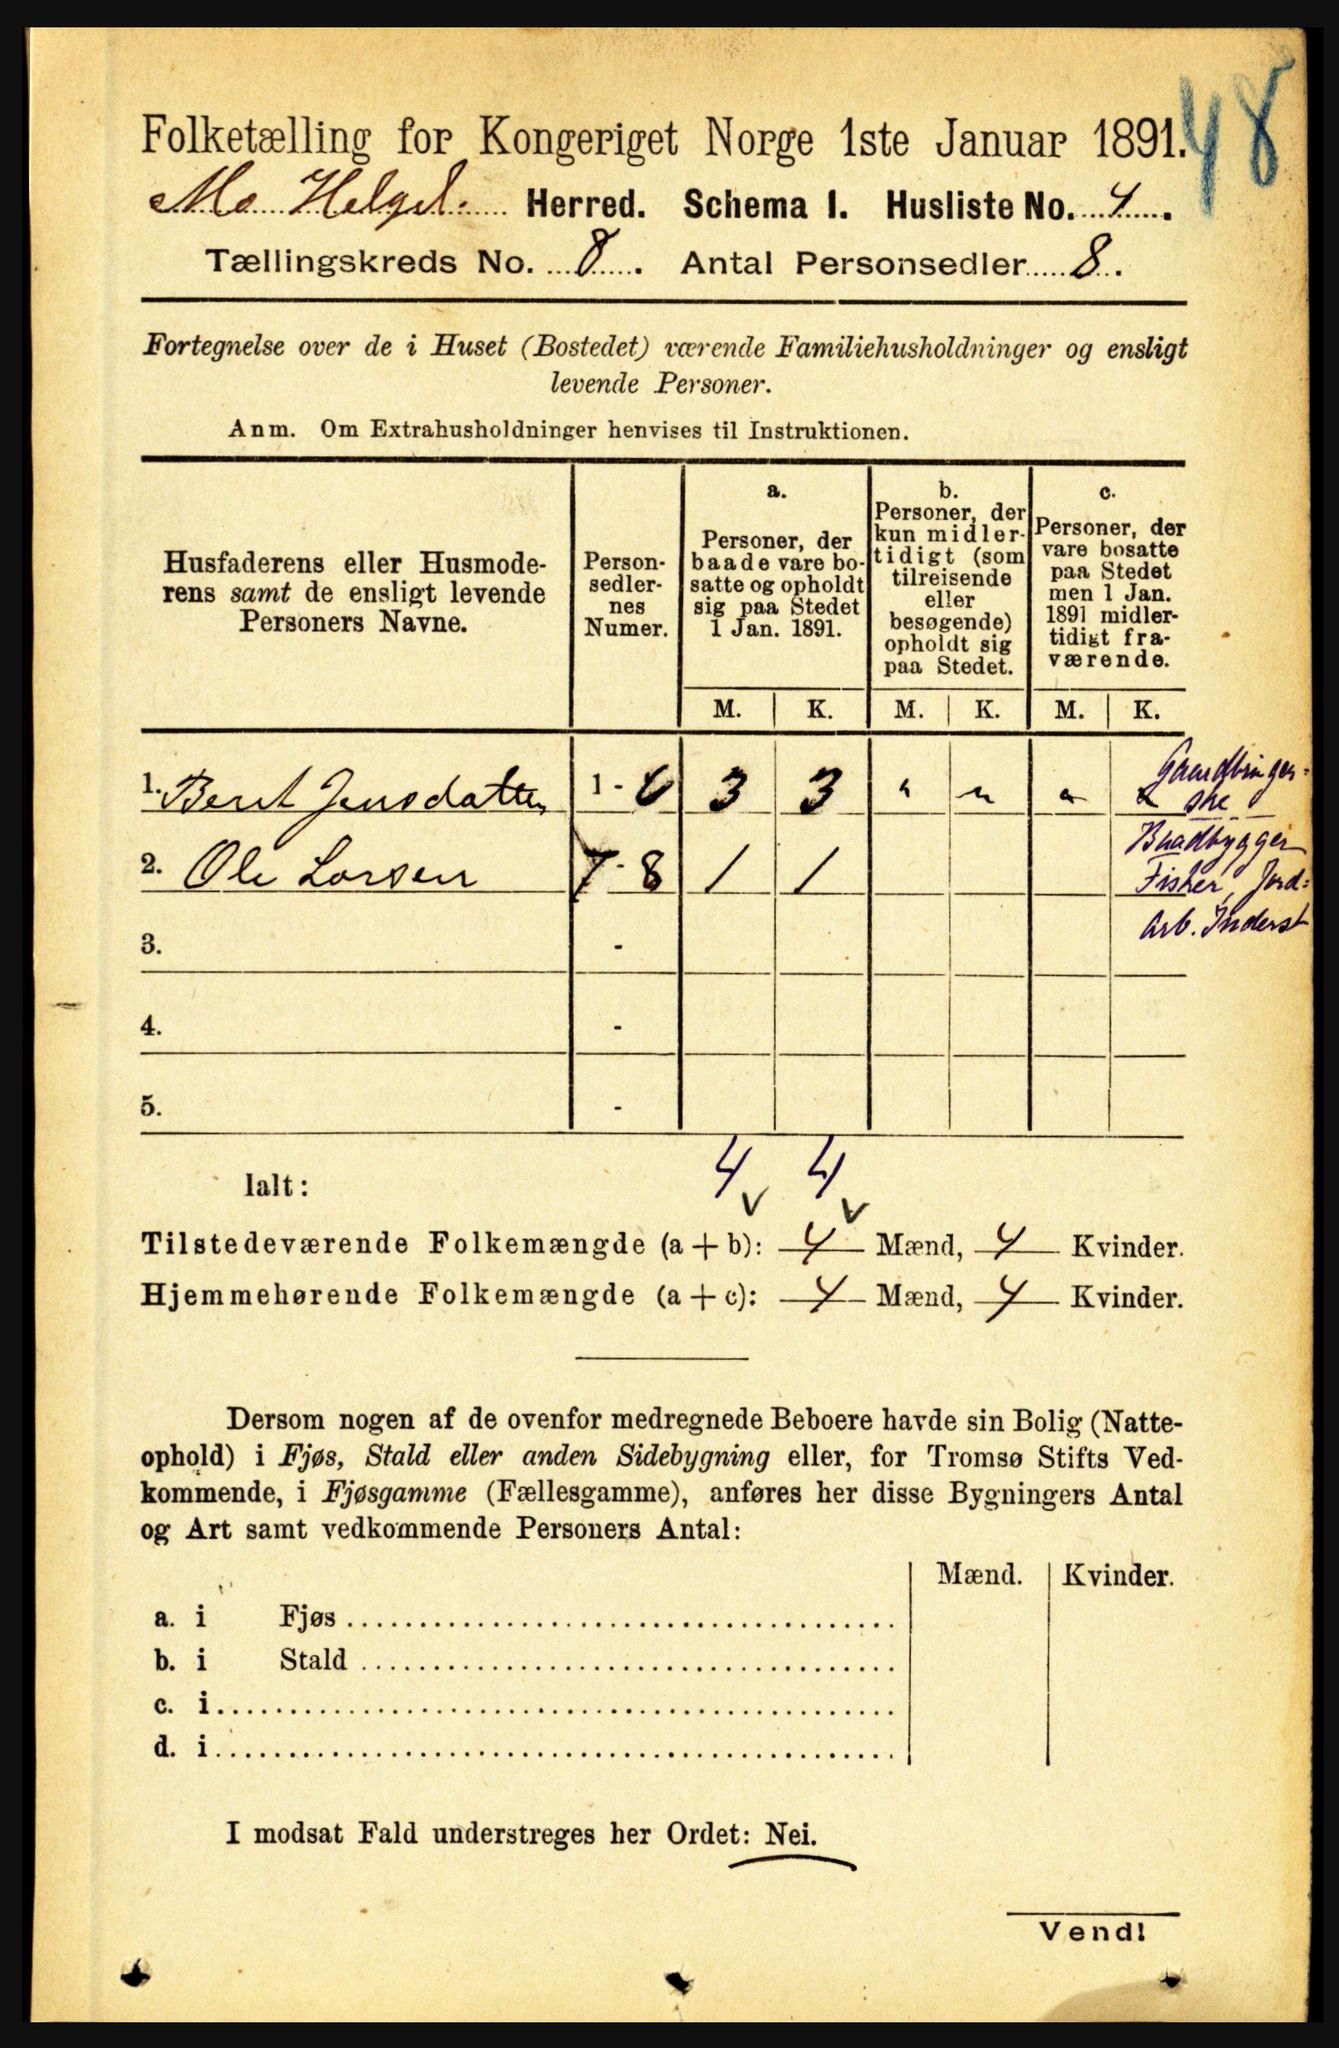 48
Folketælling for Kongeriget Norge 1ste Januar 1891.
Mo Helgel. Herred. Schema I. Husliste No. 4.
Tællingskreds No. 8. Antal Personsedler 8.
Fortegnelse over de i Huset (Bostedet) værende Familiehusholdninger og ensligt
levende Personer.
Anm. Om Extrahusholdninger henvises til Instruktionen.
Husfaderens eller Husmode-
rens samt de ensligt levende
Personers Navne.
Person-
sedler-
nes
Numer.
a.
Personer, der
baade vare bo-
satte og opholdt
sig paa Stedet
1 Jan. 1891.
b.
Personer, der
kun midler-
tidigt (som
tilreisende
eller
besøgende)
opholdt sig
paa Stedet.
c.
Personer, der
vare bosatte
paa Stedet
men 1 Jan.
1891 midler-
tidigt fra-
værende.
M. K. M. K. M. K.
1. Berit Jensdatter 1 - 6 3 3 " " " "
Gaardbruger-
ske
2. Ole Larsen 7 - 8 1 1
Baadbygger
Fisker, Jord-
arb. Inderst
3. -
4. -
5. -
Ialt: 4 4
Tilstedeværende Folkemængde (a + b): 4 Mænd, 4 Kvinder.
Hjemmehørende Folkemængde (a + c): 4 Mænd, 4 Kvinder.
Dersom nogen af de ovenfor medregnede Beboere havde sin Bolig (Natte-
ophold) i Fjøs, Stald eller anden Sidebygning eller, for Tromsø Stifts Ved-
kommende, i Fjøsgamme (Fællesgamme), anføres her disse Bygningers Antal
og Art samt vedkommende Personers Antal:
Mænd. Kvinder.
a. i Fjøs
b. i Stald
c. i
d. i
I modsat Fald understreges her Ordet: Nei.
Vend!